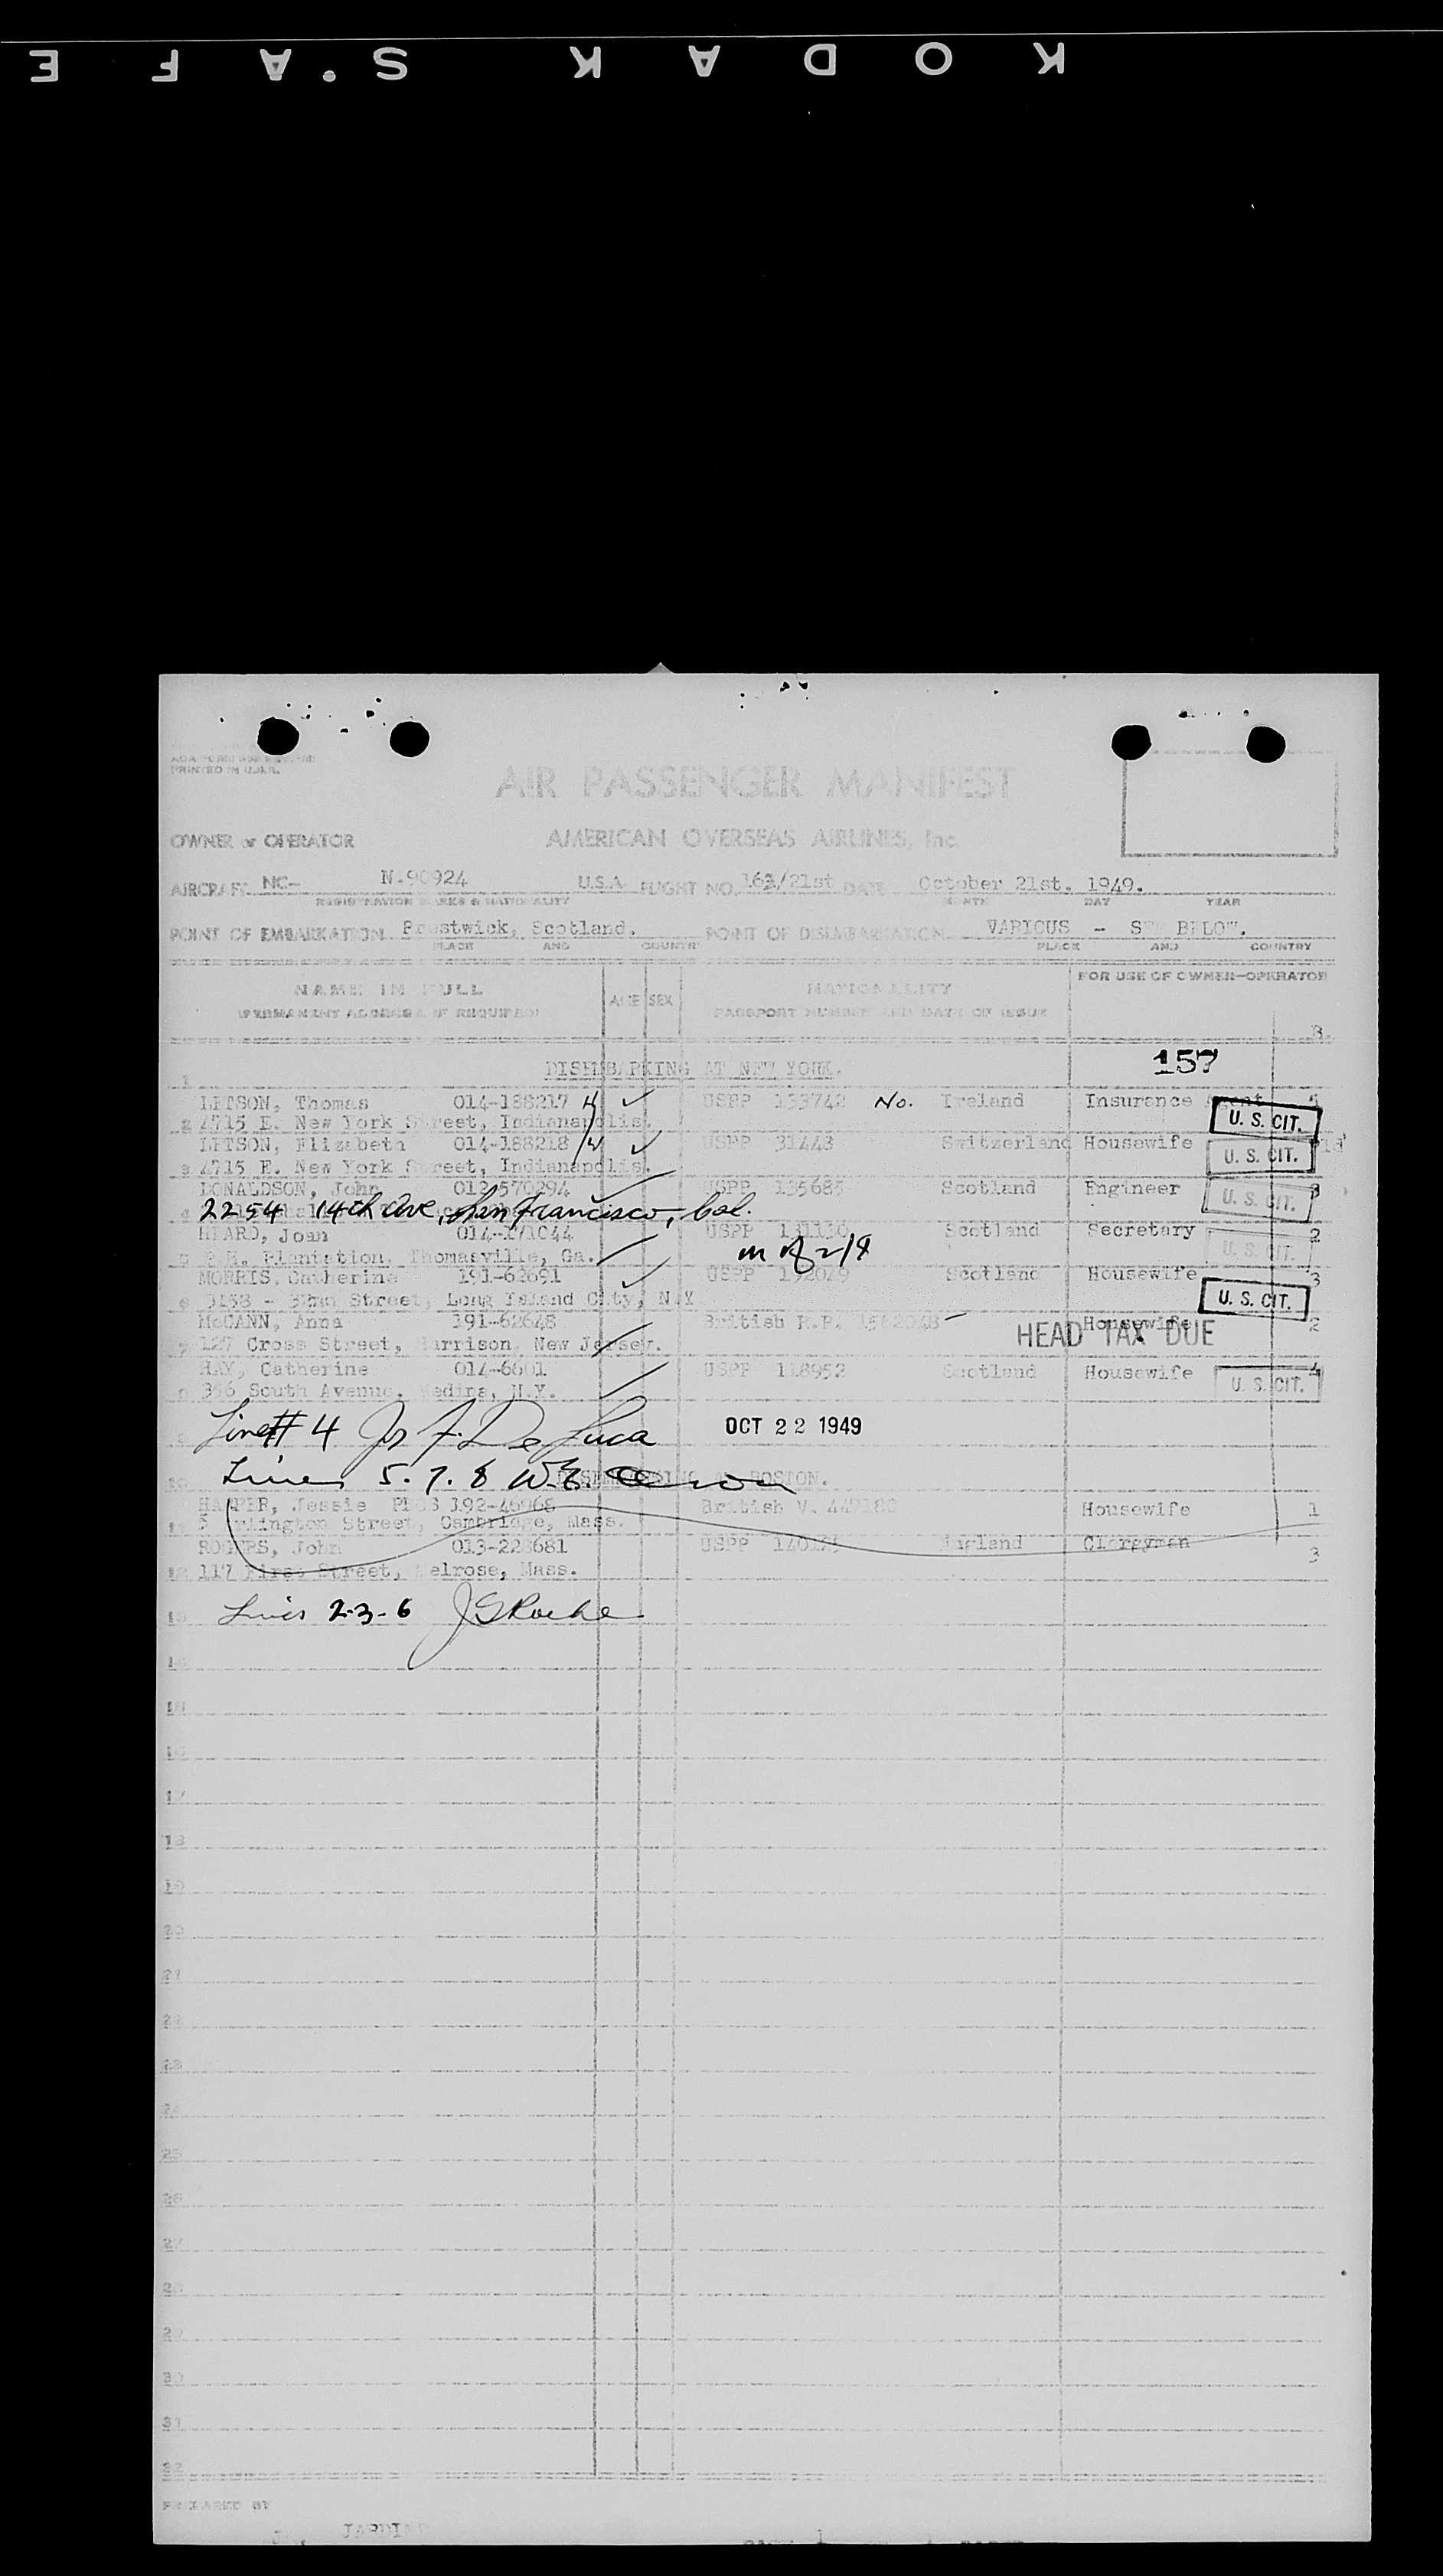 KODAK S.AFE
PRINTED IN U.S.A.
AIR PASSENGER MANIFEST
OWNER or OPERATOR AMERICAN OVERSEAS AIRLINES, Inc.
AIRCRAFT NC- N-90924 U.S.A. FLIGHT NO. 163/21st DATE October 21st. 1949.
REGISTRATION MARKS & NATIONALITY MONTH DAY YEAR
POINT OF EMBARKATION Prestwick, Scotland. POINT OF DISEMBARKATION VARIOUS - SEE BELOW.
PLACE AND COUNTRY PLACE AND COUNTRY
NAME IN FULL AGE SEX NATIONALITY FOR USE OF OWNER-OPERATOR
(PERMANENT ADDRESS IF REQUIRED) PASSPORT NUMBER AND DATE OF ISSUE
B.
1 DISEMBARKING AT NEW YORK. 157
LETSON, Thomas 014-188217 USPP 133742 No. Ireland Insurance Agent
2 4715 E. New York Street, Indianapolis. U. S. CIT.
LETSON, Elizabeth 014-188218 USPP 31443 Switzerland Housewife
3 4715 E. New York Street, Indianapolis. U. S. CIT.
DONALDSON, John 012-570294 USPP 135685 Scotland Engineer 3
4 2254 14th Ave, San Francisco, Cal. U. S. CIT.
HEARD, Joan 014-171044 USPP 131130 Scotland Secretary 2
5 Plantation, Thomasville, Ga. U. S. CIT.
MORRIS, Catherine 191-62691 USPP 192029 Scotland Housewife 3
6 3158 - 32nd Street, Long Island City, N.Y U. S. CIT.
McCANN, Anna 191-62648 British R.P. Housewife 2
7 127 Cross Street, Harrison, New Jersey. HEAD TAX DUE
HAY, Catherine 014-6601 USPP 118952 Scotland Housewife 4
8 356 South Avenue, Medina, N.Y. U. S. CIT.
9 Line # 4 Jos F. De Luca OCT 22 1949
10 DISEMBARKING AT BOSTON.
Lines 5. 7. 8
HARPER, Jessie 192-46968 British V. Housewife 1
11 5 Arlington Street, Cambridge, Mass.
ROGERS, John 013-228681 USPP England Clergyman 3
12 117 First Street, Melrose, Mass.
13 Lines 2-3-6 JG Roche
14
15
16
17
18
19
20
21
22
23
24
25
26
27
28
29
30
31
32
PREPARED BY